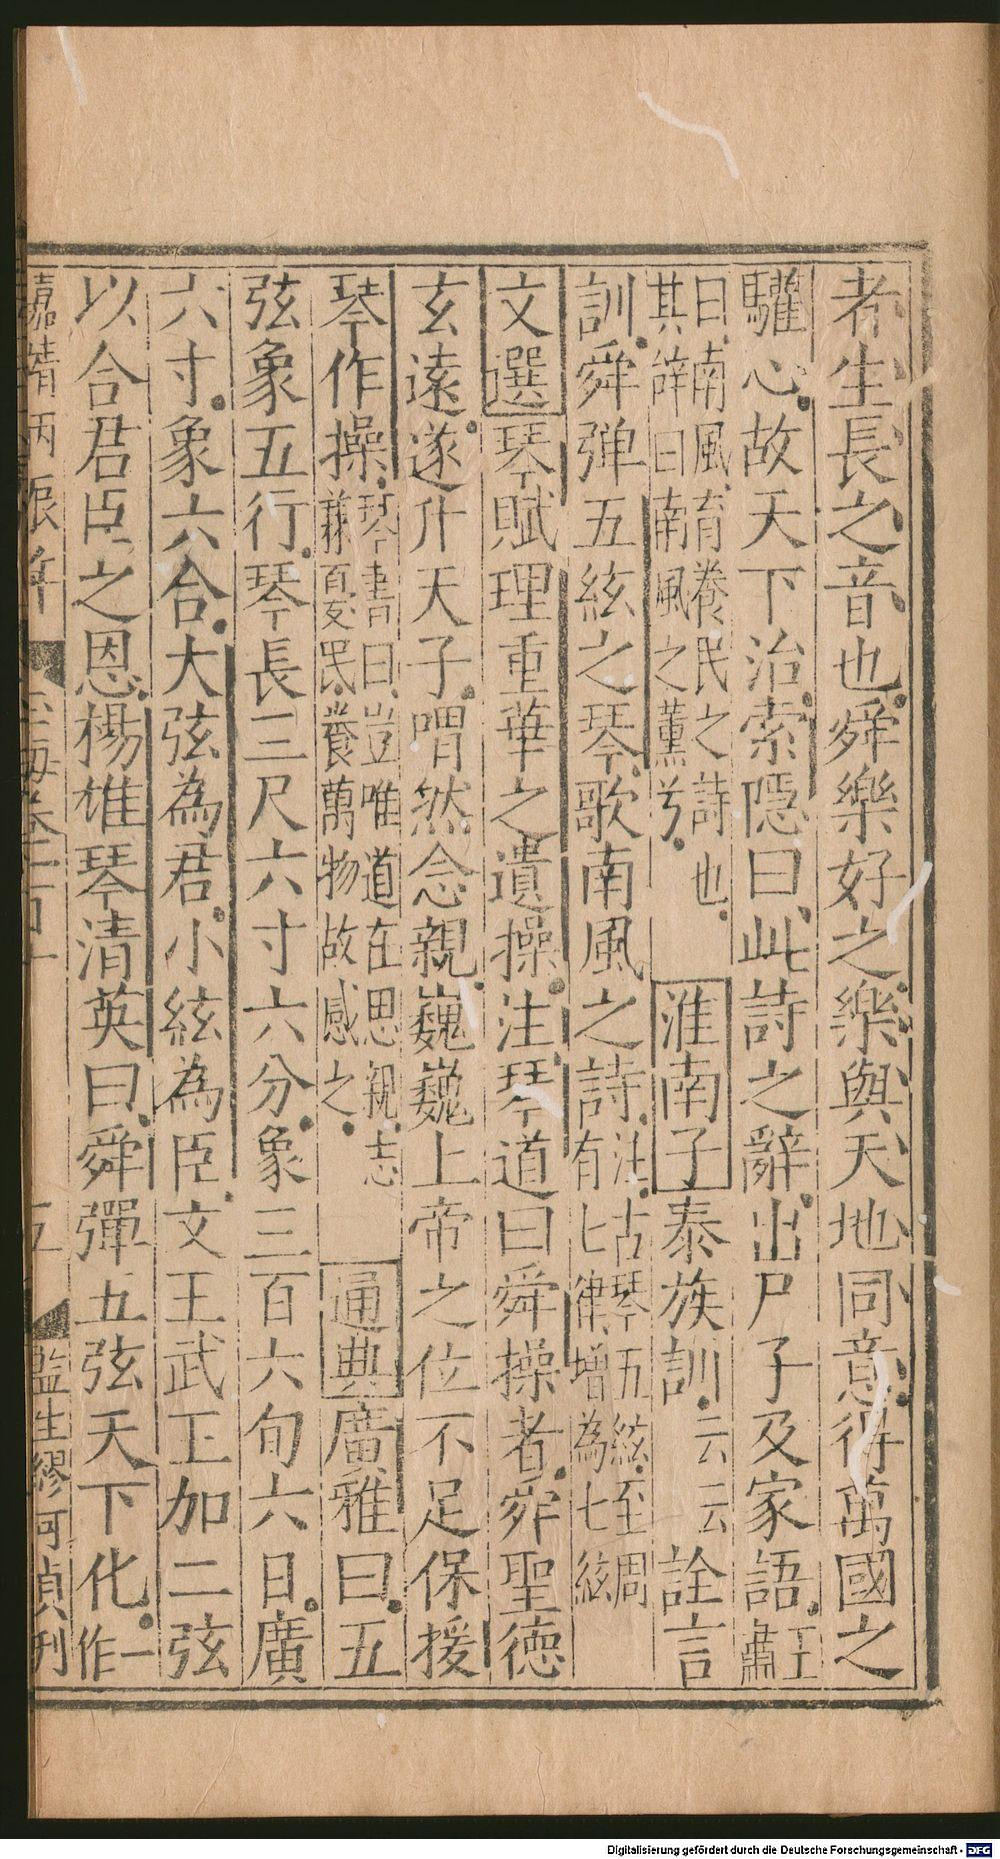 者生長之音也舜樂好之樂與天地同意得萬國之
驩心故天下治索隱曰此詩之辭出尸子及家語王肅
曰南風育養民之詩也
其辭曰南風之薰兮
淮南子泰族訓云云詮言
訓舜彈五絃之琴歌南風之詩注古琴五絃至周
有七律增為七絃
文選琴賦理重華之遺操注琴道曰舜操者舜聖德
玄遠遂升天子喟然念親巍巍上帝之位不足保援
琴作操琴書曰豈唯道在思親志
兼夏民養萬物故感之
通典廣雅曰五
弦象五行琴長三尺六寸六分象三百六旬六日廣
六寸象六合大弦為君小絃為臣文王武王加二弦
以合君臣之恩楊雄琴清英曰舜彈五弦天下化一作
嘉靖丙辰年
玉海卷二百十
五
監生繆可貞刊
Digitalisierung gefördert durch die Deutsche Forschungsgemeinschaft - DFG